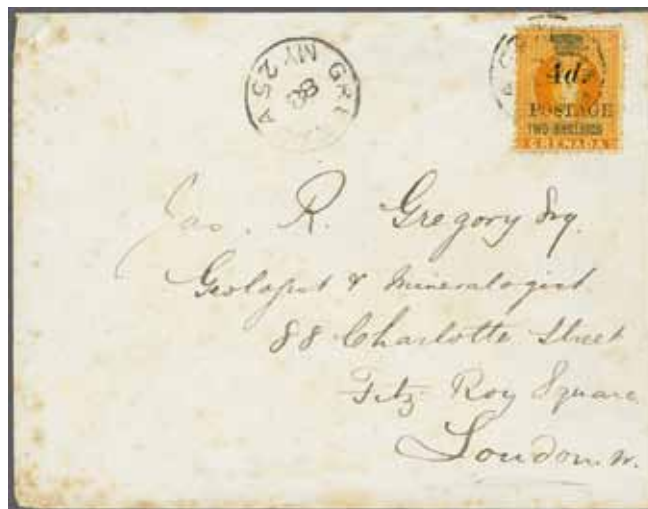 GRE A
MY 25
88
4d.
POSTAGE
TWO SHILLINGS
GRENADA
Jas. R. Gregory Esq.
Geologist & Mineralogist
88 Charlotte Street
Fitz Roy Square
London. W.